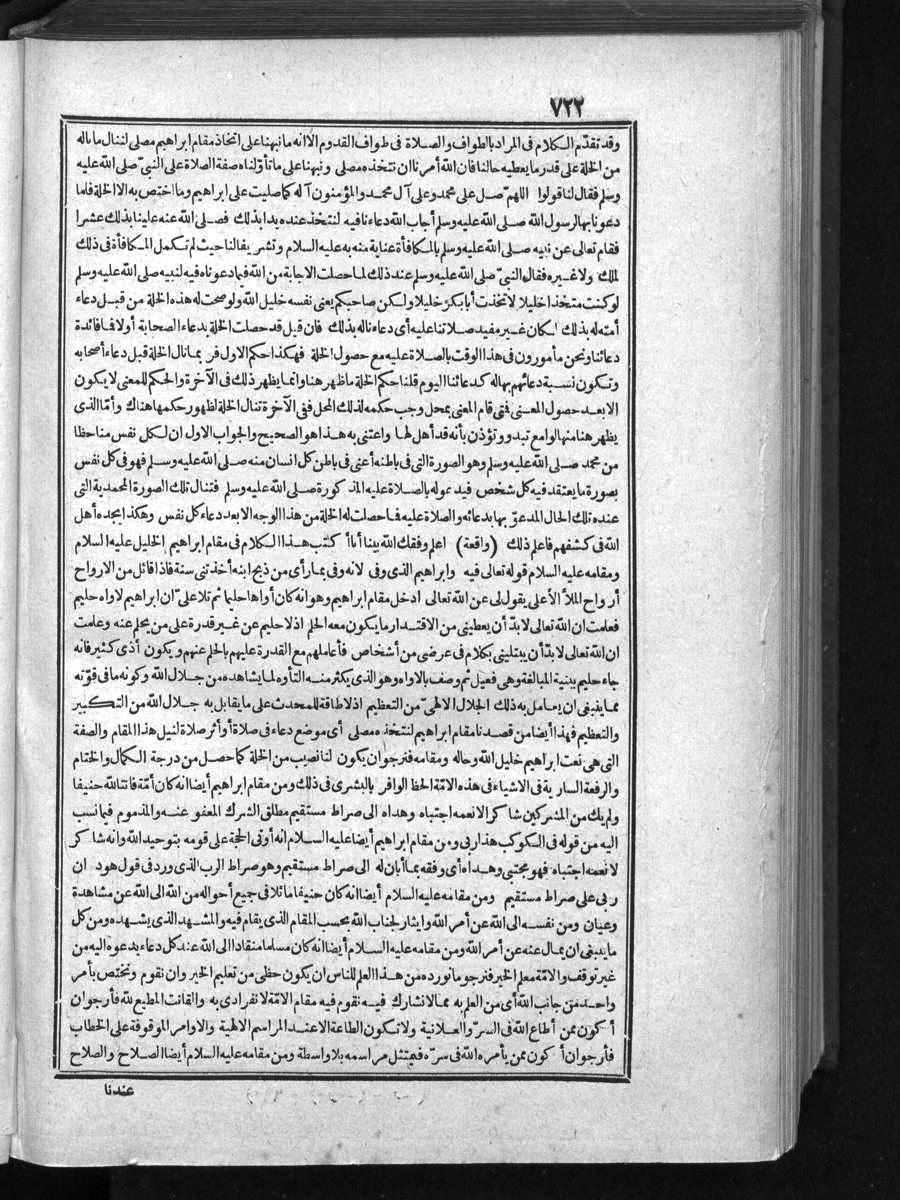 ٧٢٢
وقد تقدّم الكلام فى المراد بالطواف والصلاة فى طواف القدوم الا أنه ما نبهنا على اتخاذ مقام ابراهيم مصلى لننال ما ناله
من الخلة على قدر ما يعطيه حالنا فان الله أمرنا ان نتخذه مصلى ونبهنا على ما تأوّلناه صفة الصلاة على النبىّ صلى الله عليه
وسلم فقال لنا قولوا اللهمّ صل على محمد وعلى آل محمد والمؤمنون آله كما صليت على ابراهيم وما اختص به الا الخلة فلما
دعونا بها لرسول الله صلى الله عليه وسلم أجاب الله دعاءنا فيه لنتخذ عنده يدا بذلك فصلى الله عنه علينا بذلك عشرا
فقام تعالى عن نبيه صلى الله عليه وسلم بالمكافأة عناية منه به عليه السلام وتشريفا لنا حيث لم تكمل المكافأة فى ذلك
لملك ولا غيره فقال النبىّ صلى الله عليه وسلم عند ذلك لما حصلت الاجابة من الله فيما دعوناه فيه لنبيه صلى الله عليه وسلم
لو كنت متخذا خليلا لاتخذت أبا بكر خليلا ولكن صاحبكم يعنى نفسه خليل الله ولو صحت له هذه الخلة من قبل دعاء
أمته له بذلك لكان غير مفيد صلاتنا عليه أى دعاءنا له بذلك فان قيل قد حصلت الخلة بدعاء الصحابة أولا فما فائدة
دعائنا ونحن مأمورون فى هذا الوقت بالصلاة عليه مع حصول الخلة فهكذا حكم الاول فربما نال الخلة قبل دعاء أصحابه
وتكون نسبة دعائهم بها له كدعائنا اليوم قلنا حكم الخلة ما ظهر هنا وانما يظهر ذلك فى الآخرة والحكم للمعنى لا يكون
الا بعد حصول المعنى فمتى قام المعنى بمحل وجب حكمه لذلك المحل ففى الآخرة تنال الخلة لظهور حكمها هناك وأمّا الذى
يظهر هنا منها لوامع تبدو وتؤذن بأنه قد أهل لها واعتنى به هذا هو الصحيح والجواب الاول ان لكل نفس منا حظا
من محمد صلى الله عليه وسلم وهو الصورة التى فى باطنه أعنى فى باطن كل انسان منه صلى الله عليه وسلم فهو فى كل نفس
بصورة ما يعتقد فيه كل شخص فيدعو له بالصلاة عليه المذكورة صلى الله عليه وسلم فتنال تلك الصورة المحمدية التى
عنده تلك الحال المدعوّ بها بدعائه والصلاة عليه فما حصلت له الخلة من هذا الوجه الا بعد دعاء كل نفس وهكذا يجده أهل
الله فى كشفهم فاعلم ذلك (واقعة) اعلم وفقك الله بينا أنا أكتب هذا الكلام فى مقام ابراهيم الخليل عليه السلام
ومقامه عليه السلام قوله تعالى فيه وابراهيم الذى وفى لانه وفى بما رأى من ذبح ابنه أخذتنى سنة فاذا قائل من الارواح
أرواح الملأ الأعلى يقول لى عن الله تعالى ادخل مقام ابراهيم وهو انه كان أواها حليما ثم تلا علىّ ان ابراهيم لاواه حليم
فعلمت ان الله تعالى لا بدّ أن يعطينى من الاقتدار ما يكون معه الحلم اذ لا حليم عن غير قدرة على من يحلم عنه وعلمت
ان الله تعالى لا بدّ أن يبتلينى بكلام فى عرضى من أشخاص فأعاملهم مع القدرة عليهم بالحلم عنهم ويكون أذى كثير فانه
جاء حليم ببنية المبالغة وهى فعيل ثم وصف بالاواه وهو الذى يكثر منه التأوه لما يشاهده من جلال الله وكونه ما فى قوّته
مما ينبغى ان يعامل به ذلك الجلال الالهىّ من التعظيم اذ لا طاقة للمحدث على ما يقابل به جلال الله من التكبير
والتعظيم فهذا أيضا من قصدنا مقام ابراهيم لنتخذه مصلى أى موضع دعاء فى صلاة أو أثر صلاة لنيل هذا المقام والصفة
التى هى نعت ابراهيم خليل الله وحاله ومقامه فنرجو أن يكون لنا نصيب من الخلة كما حصل من درجة الكمال والختام
والرفعة السارية فى الاشياء فى هذه الامّة الحظ الوافر بالبشرى فى ذلك ومن مقام ابراهيم أيضا انه كان أمّة قانتا لله حنيفا
ولم يك من المشركين شاكرا لانعمه اجتباه وهداه الى صراط مستقيم مطلق الشرك المعفو عنه والمذموم فيما نسب
اليه من قوله فى الكوكب هذا ربى ومن مقام ابراهيم أيضا عليه السلام انه أوتى الحجة على قومه بتوحيد الله وانه شاكر
لانعمه اجتباه فهو مجتبى وهداه أى وفقه بما أبان له الى صراط مستقيم وهو صراط الرب الذى ورد فى قول هود ان
ربى على صراط مستقيم ومن مقامه عليه السلام أيضا انه كان حنيفا مائلا فى جميع أحواله من الله الى الله عن مشاهدة
وعيان ومن نفسه الى الله عن أمر الله وايثار لجناب الله بحسب المقام الذى يقام فيه والمشهد الذى يشهده ومن كل
ما ينبغى ان يمال عنه عن أمر الله ومن مقامه عليه السلام أيضا انه كان مسلما منقادا الى الله عند كل دعاء يدعوه اليه من
غير توقف والامّة معلم الخير فنرجو ما نورده من هذا العلم للناس ان يكون حظى من تعليم الخير وان نقوم ونختص بأمر
واحد من جانب الله أى من العلم به مما لا نشارك فيه نقوم فيه مقام الامّة لانفرادى به والقانت المطيع لله فأرجو ان
أكون ممن أطاع الله فى السرّ والعلانية ولا تكون الطاعة الا عند المراسم الالهية والاوامر الموقوفة على الخطاب
فأرجو ان أكون ممن يأمره الله فى سرّه فيمتثل مراسمه بلا واسطة ومن مقامه عليه السلام أيضا الصلاح والصلاح
عندنا